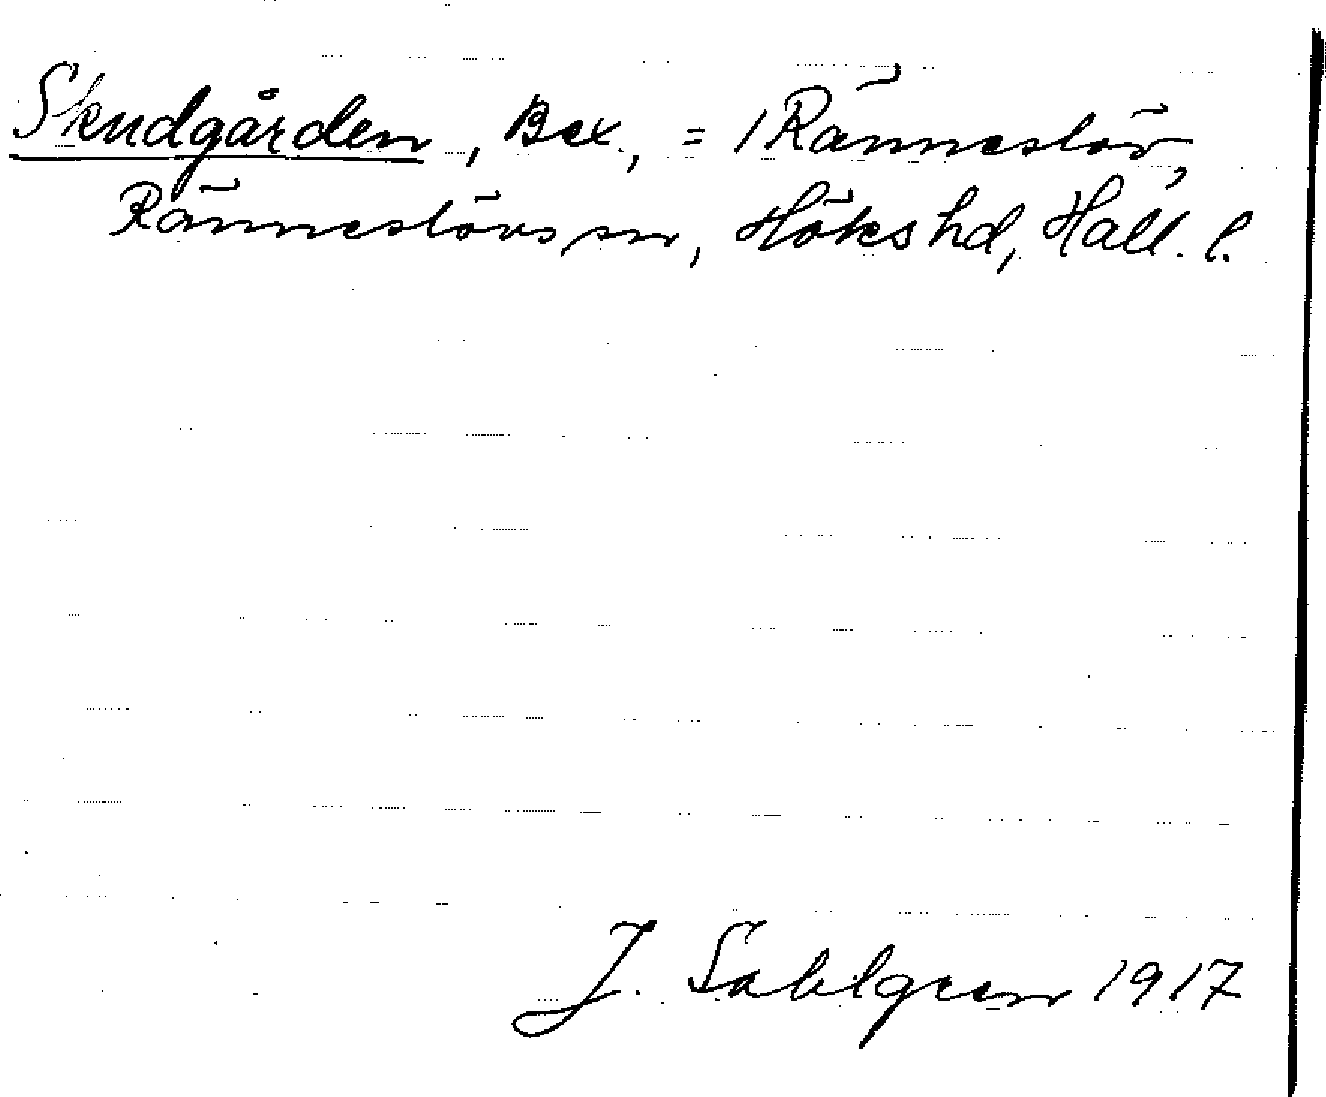 Skudgården, Bex., = 1 Ränneslöv,
Ränneslövs sn, Höks hd, Hall. l.
J. Sahlgren 1917